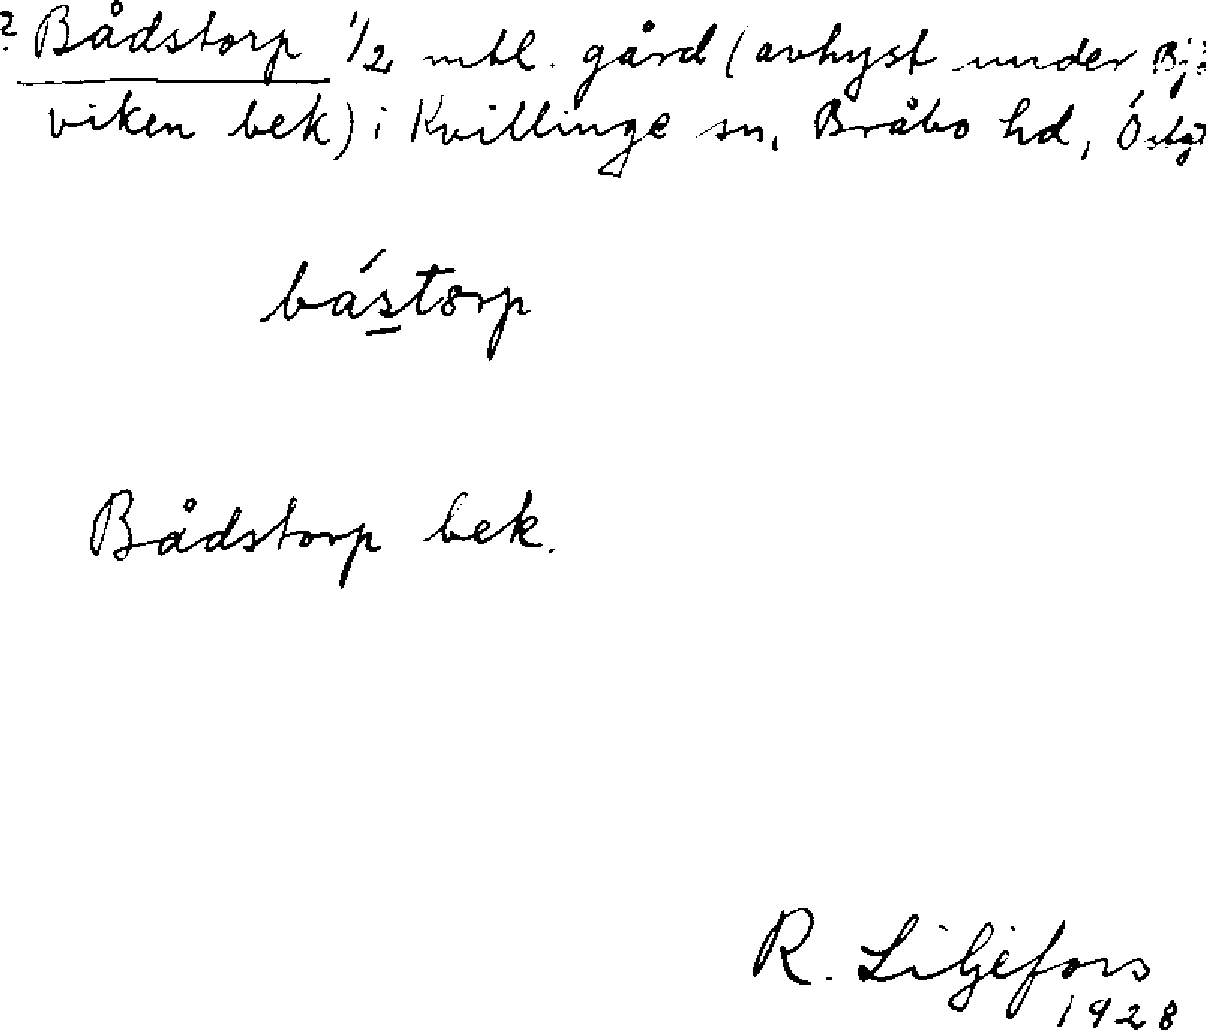 ? Bådstorp 1/2 mtl. gård (avhyst under
viken bek) i Kvillinge sn, Bråbo hd, Östgt
bástorp
Bådstorp bek.
R. Liljefors
1928